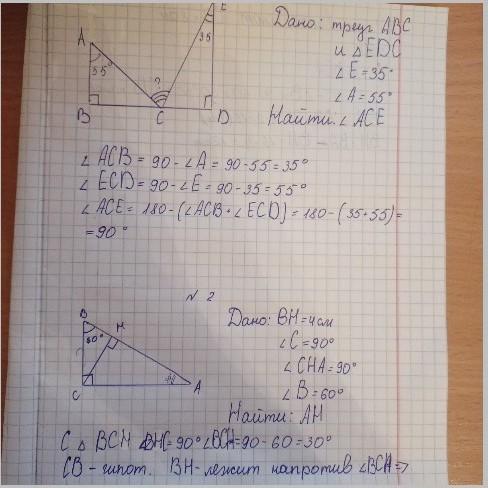 Дано: треуг ABC
и △EDC
∠E = 35°
∠A = 55°
Найти: ∠ACE
A
E
55°
35
?
B
C
D
∠ACB = 90 - ∠A = 90 - 55 = 35°
∠ECD = 90 - ∠E = 90 - 35 = 55°
∠ACE = 180 - (∠ACB + ∠ECD) = 180 - (35+55) =
= 90°
N 2
B
H
60°
C
A
Дано: BH = 4 см
∠C = 90°
∠CHA = 90°
∠B = 60°
Найти: AH
C △ BCH ∠BHC = 90° ∠BCH = 90 - 60 = 30°
CB - гипот. BH - лежит напротив ∠BCH =>